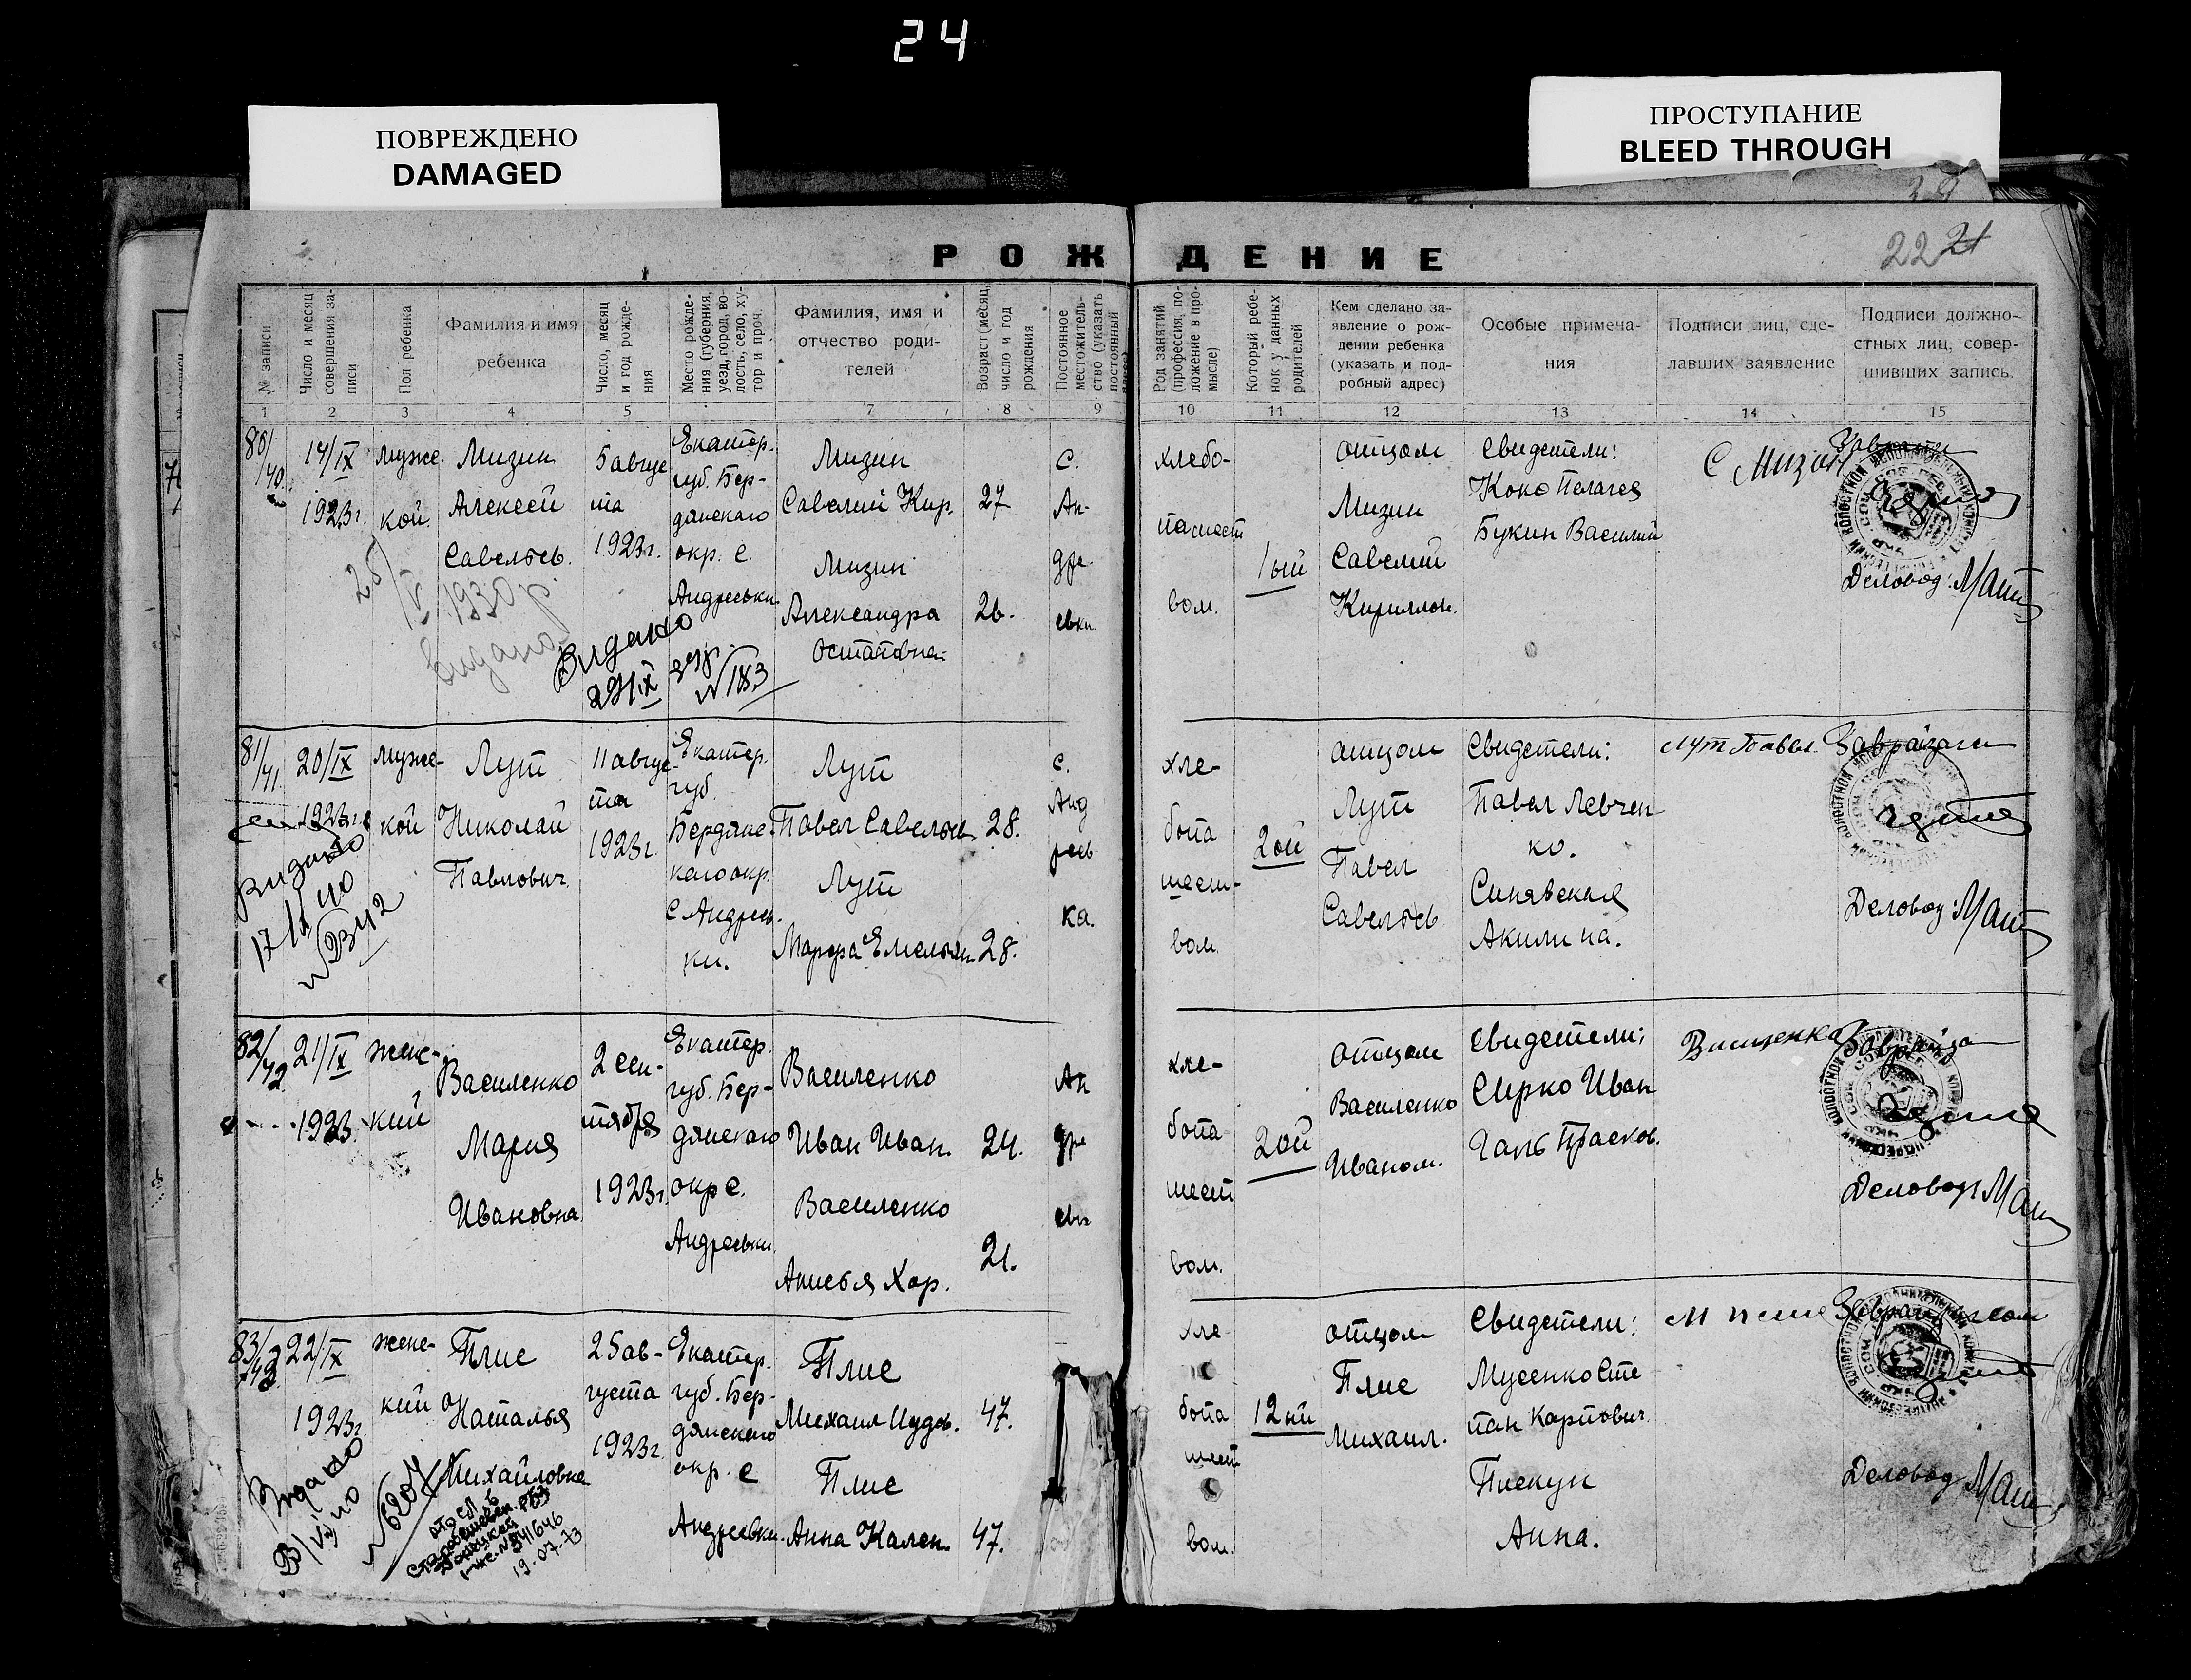 24
ПОВРЕЖДЕНО
DAMAGED
ПРОСТУПАНИЕ
BLEED THROUGH
22 21
РОЖДЕНИЕ
№ записи
Число и месяц совершения записи
Пол ребенка
Фамилия и имя
ребенка
Число, месяц и год рождения
Место рождения (губерния, уезд, город, волость, село, хутор и проч.
Фамилия, имя и
отчество роди-
телей
Возраст (месяц, число и год рождения
Постоянное местожительство (указать постоянный
Род занятий (профессия, положение в промысле)
Который ребенок у данных родителей
Кем сделано за-
явление о рож-
дении ребенка
(указать и под-
робный адрес)
Особые примеча-
ния
Подписи лиц, сде-
лавших заявление
Подписи должно-
стных лиц, совер-
шивших запись.
1 2 3 4 5 7 8 9 10 11 12 13 14 15
80/40
14/IX
1923г.
муже
кой.
Мизин
Алексей
Савельев.
5 авгус
та
1923г.
Екатер.
губ. Бер-
дянскаго
окр. с.
Андреевки
Мизин
Савелий Кир.
Мизин
Александра
Остаповна
27
26.
с.
Ан-
дре
евки
хлебо-
пашест
вом.
1ый
отцом
Мизин
Савелий
Кириллов.
Свидетели:
Коко Пелагея
Букин Василий
С Мизин
Деловод:
25/V 1930р.
видана
Видано
29/IX
№183
81/41.
20/IX
1923г.
муже-
кой
Лут
Николай
Павлович.
11 авгус
та
1923г.
Екатер.
губ.
Бердянс
каго окр.
с Андреев.
ки.
Лут
Павел Савельев.
Лут
Марфа Емельян.
28.
28.
с.
Анд
реев
ка.
хле-
бопа
шест-
вом
2ой
отцом
Лут
Павел
Савельев
Свидетели:
Павел Левчен
ко.
Синявская
Акилина.
Лут Павел.
Деловод:
Видано
№2342
82/42
21/IX
1923
женс-
кий
Василенко
Мария
Ивановна
2 сен-
тября
1923г.
Екатер.
губ. Бер-
дянскаго
окр с.
Андреевки.
Василенко
Иван Иван.
Василенко
Анисья Хар.
24.
21.
Ан
дре
евки
хле-
бопа
шест
вом.
2ой
отцом
Василенко
Иваном.
Свидетели:
Сирко Иван
Галь Прасков.
Деловод
83/43
22/IX
1923г.
женс-
кий
Плис
Наталья
Михайловна
25 ав-
густа
1923г.
Екатер.
губ. Бер-
дянскаго
окр. с
Андреевки.
Плис
Михаил Иудов.
Плис
Анна Кален.
47.
47.
хле
бопа
шест
вом.
12ый
отцом
Плис
Михаил.
Свидетели:
Мусенко Сте
пан Карпович.
Пискун
Анна.
Деловод
Видано
№6204
19.07.73